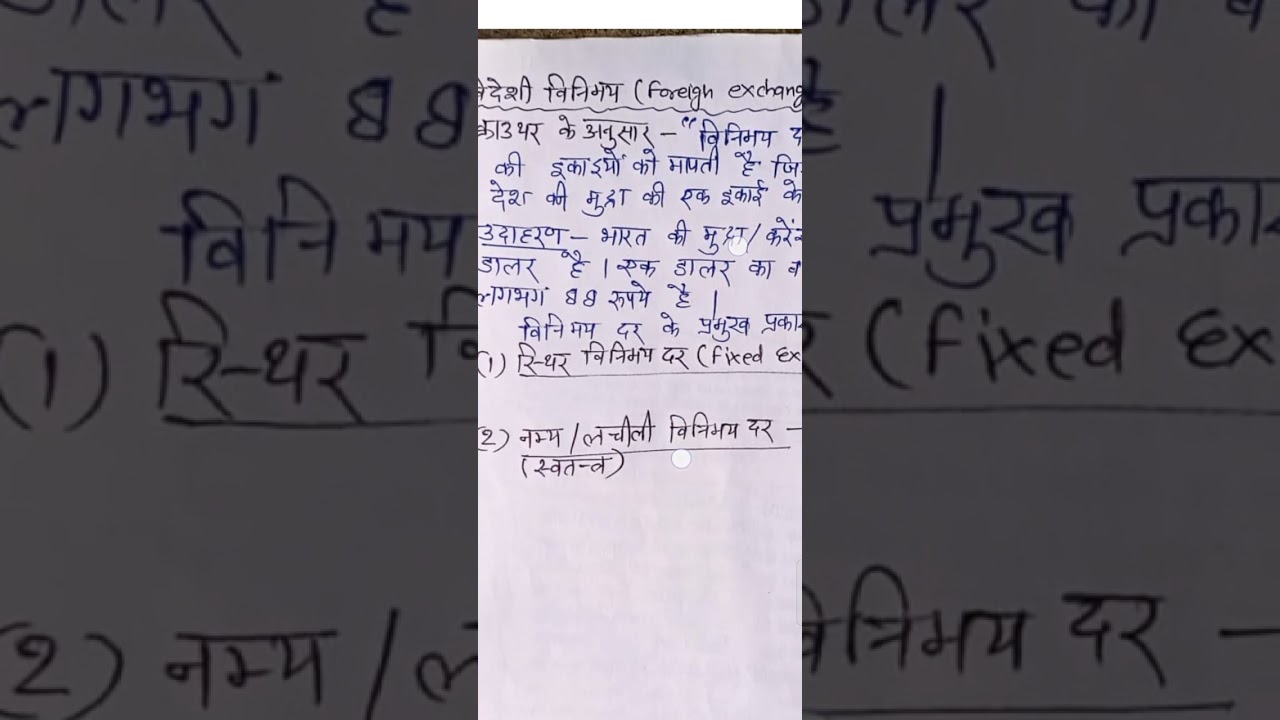 विदेशी विनिमय (Foreign exchang
क्राउथर के अनुसार - "विनिमय द
की इकाइयों को मापती है जि
देश की मुद्रा की एक इकाई के
उदाहरण - भारत की मुद्रा / करें
डालर है । एक डालर का व
लगभग 88 रूपये है |
विनिमय दर के प्रमुख प्रका
(1) स्थिर विनिमय दर (Fixed Ex
(2) नम्य / लचीली विनिमय दर -
(स्वतन्त्र)